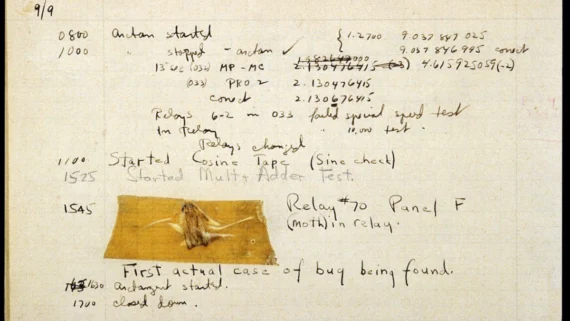 9/9
0800 antan started { 1.2700 9.037 847 025
1000 " stopped - antan ✓ 9.037 846 995 conect
13"uc (032) MP - MC 2.130476415 4.615925059(-2)
(033) PRO 2 2.130476415
conect 2.130676415
Relays 6-2 in 033 failed special speed test
In Relay " 10,000 test .
Relays changed
1100 Started Cosine Tape (Sine check)
1525 Started Mult + Adder Test.
1545 Relay #70 Panel F
(moth) in relay.
First actual case of bug being found.
1630 antangent started.
1700 closed down .